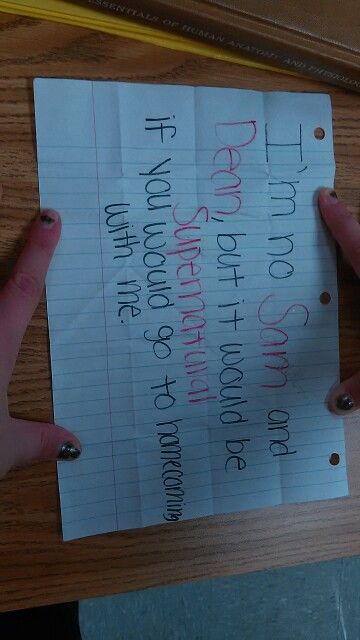 ESSENTIALS OF HUMAN ANATOMY AND PHYSIOLOGY
I'm no Sam and
Dean, but it would be
Supernatural
if you would go to homecoming
with me.